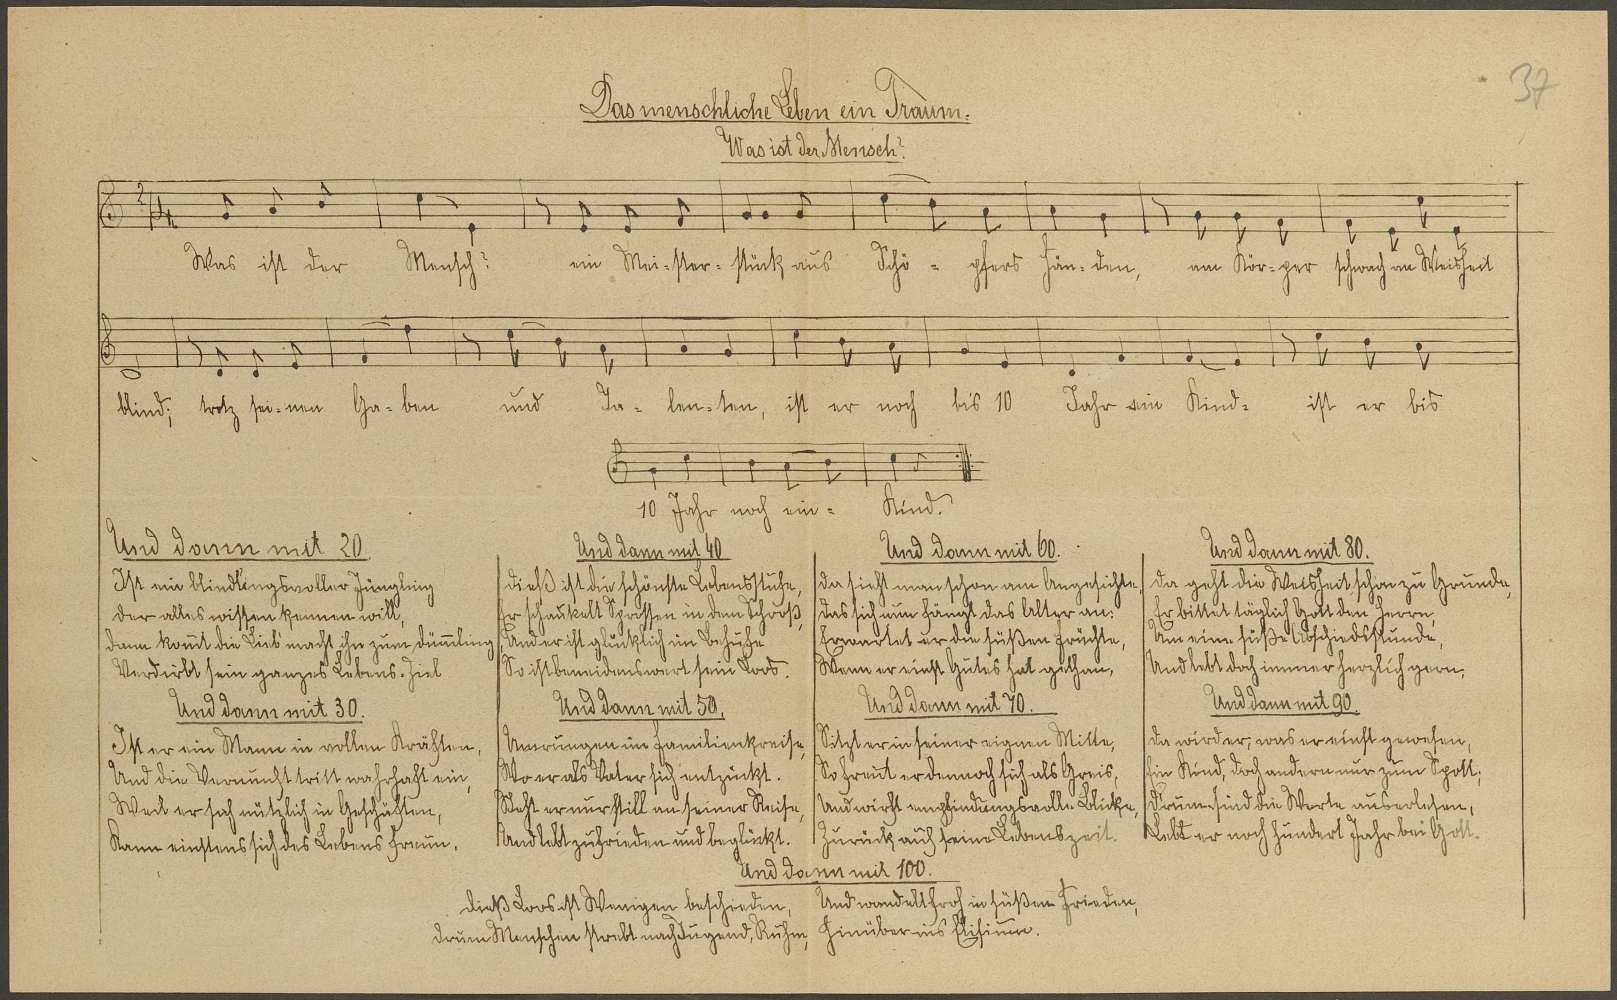 37
Das menschliche Leben ein Traum.
Was ist der Mensch?
Was ist der Mensch? ein Mei-ster-stück aus Schö-pfers Hän-den, am Kör-per schwach an Weisheit
blind; trotz sei-nen Ga-ben und Ta-len-ten, ist er noch bis 10 Jahr ein Kind- ist er bis
10 Jahr noch ein- Kind.
Und dann mit 20
Ist ein blindlingsvoller Jüngling
der alles wissen kennen will,
dann kom̄t die Lieb' macht ihn zum Düm̄ling
Verdirbt sein ganzes Lebens-Ziel
Und dann mit 30.
Ist er ein Mann in vollen Kräften,
Und die Vernunft tritt wahrhaft ein,
Weil er sich nützlich in Geschäften,
Kann einstens sich des Lebens freun.
Und dann mit 40
Dieß ist die schönste Lebensstufe,
Er schaukelt Sprossen in dem Schooß,
Und er ist glücklich im Berufe
So ist beneidenswert sein Loos.
Und dann mit 50.
Umrungen im Familienkreise,
Wo er als Vater sich entzückt.
Steht er nur still an seiner Reise,
Und lebt zufrieden und beglückt.
Und dann mit 60.
Da sieht man schon am Angesichte,
das sich nun hängt das Alter an:
Erwartet er die süßen Früchte,
Wenn er einst Gutes hat gethan,
Und dann mit 70.
Sitzt er in seiner eignen Mitte,
So freut er dennoch sich als Greis,
Und wirft empfindungsvolle Blicke,
Zurück auf seine Lebenszeit.
Und dann mit 80.
Da geht die Weisheit schon zu Grunde,
Er bittet täglich Gott den Herrn,
Um eine süße Abschiedsstunde,
Und lebt doch immer herzlich gern,
Und dann mit 90.
Da wird er, was er einst gewesen,
Ein Kind, doch andern nur zum Spott;
Drum sind die Worte auserlesen,
Lebt er noch hundert Jahr bei Gott.
Und dann mit 100.
Dieß Loos ist Wenigen beschieden,
Drum Menschen strebt nach Tugend, Ruhm,
Und wandelt froh in süßen Frieden,
Hinüber ins Elisium.